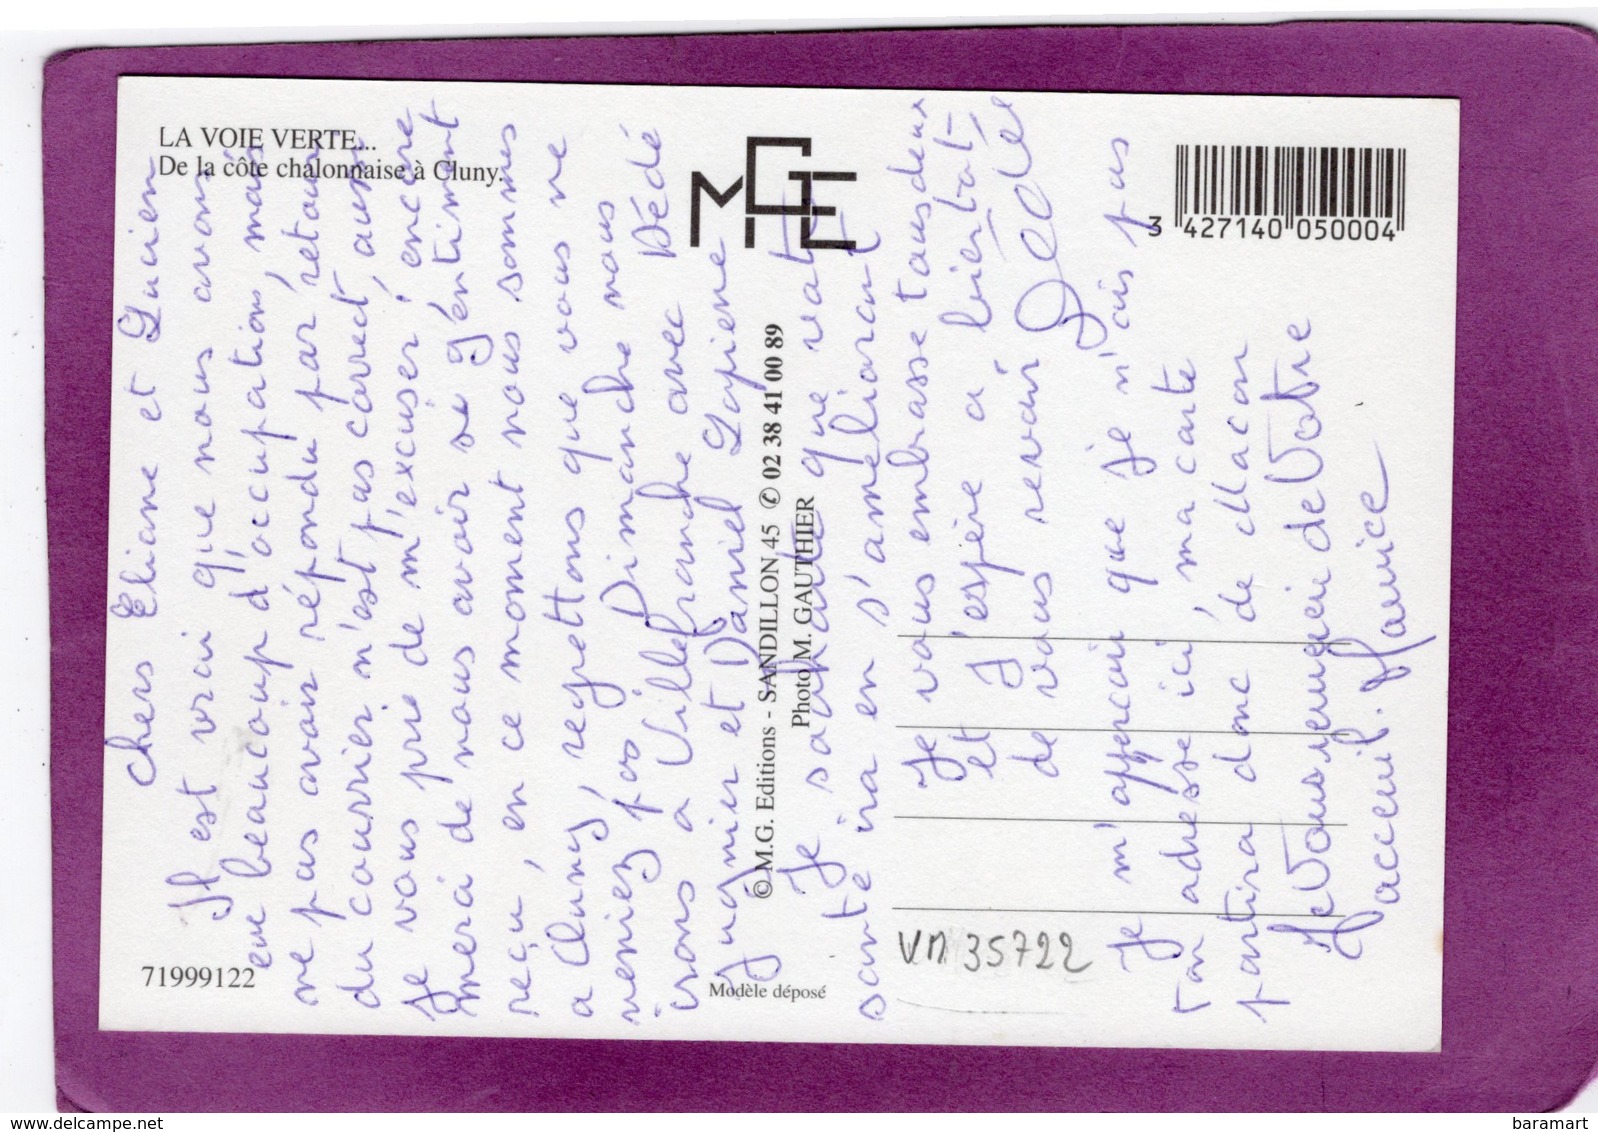 LA VOIE VERTE...
De la côte chalonnaise à Cluny.
3 427140 050004
© M.G. Editions - SANDILLON 45 ✆ 02 38 41 00 89
Photo M. GAUTHIER
71999122
Modèle déposé
VM 35722
Chers Eliane et Lucien
Il est vrai que nous avons
eue beaucoup d'occupation, mais
ne pas avoir répondu par retour
du courrier n'est pas correct, aussi
je vous prie de m'excuser, encore
merci de nous avoir si gentiment
reçu, en ce moment nous sommes
a Cluny, regrettons que vous ne
veniez pas Dimanche nous
irons a Villefranche avec Dédé
Juanier et Daniel Lapierre
Je souhaite que
santé ira en s'améliorant
Je vous embrasse tous deux
et J'espère a bientôt
de vous revoir Dédé
Je m'aperçoit que je n'ais pas
ton adresse ici, ma carte
partira donc de Macon
Je Vous remercie de Votre
accueil. Maurice
delcampe.net
baramart